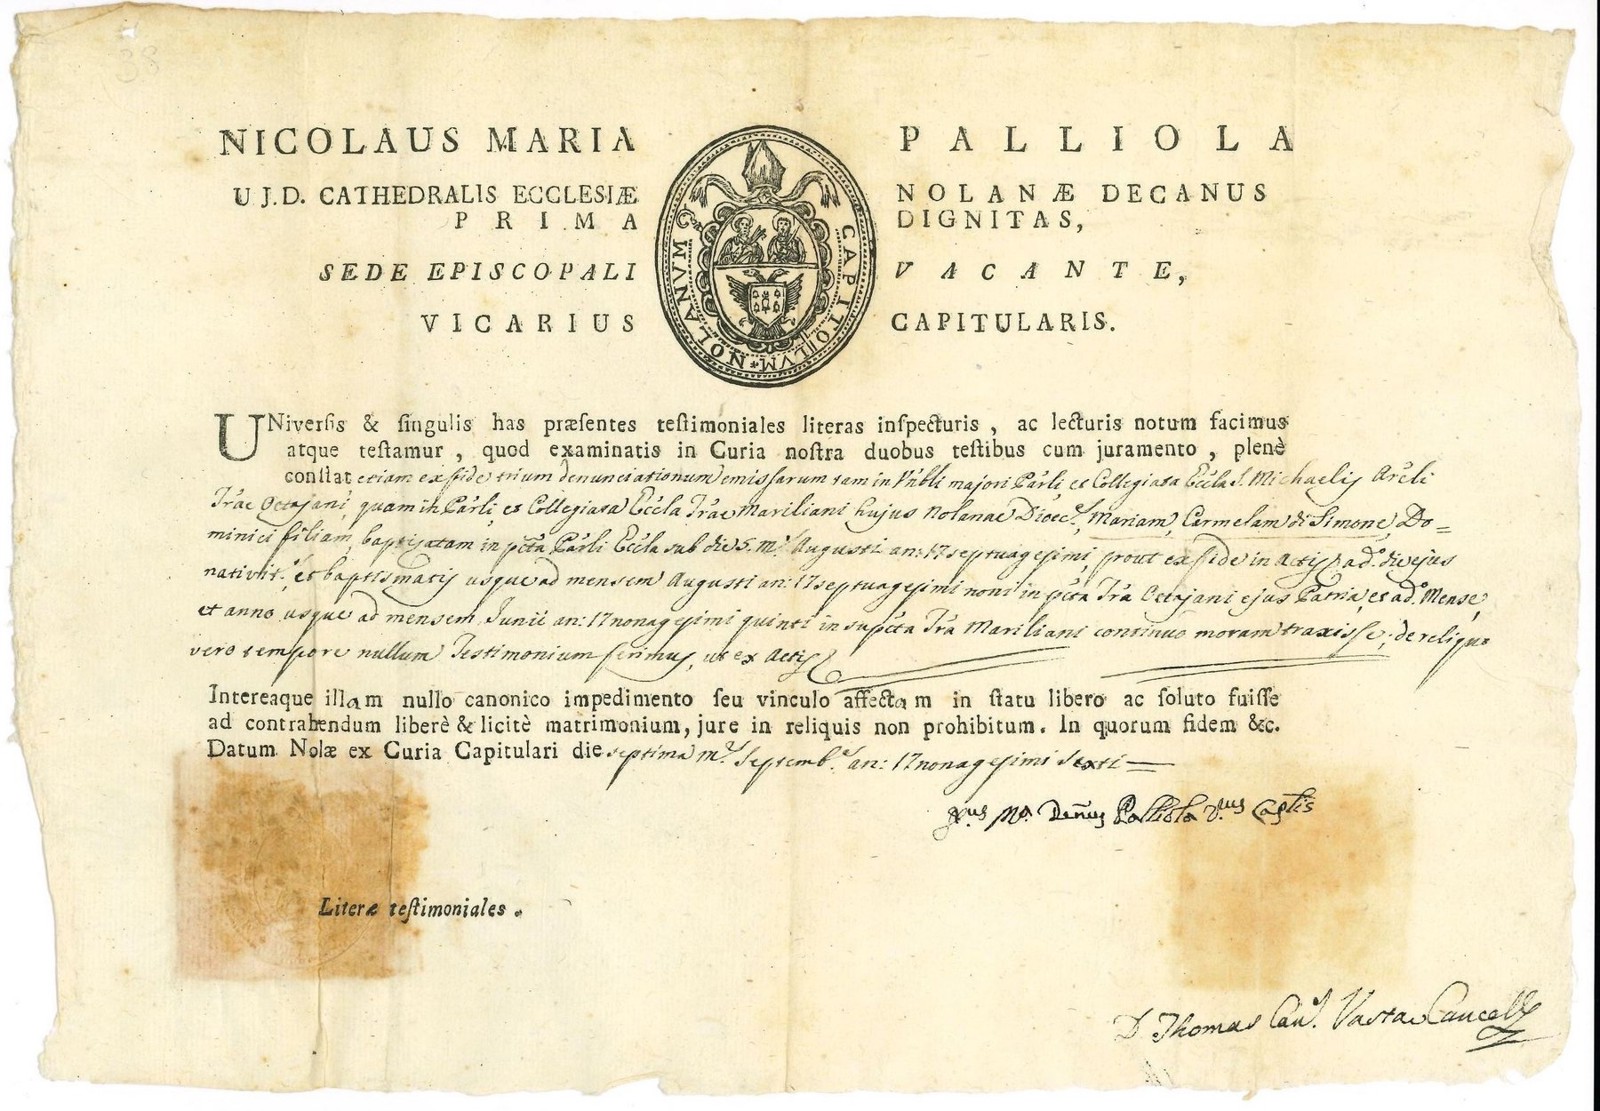 38
NICOLAUS MARIA PALLIOLA
U J.D. CATHEDRALIS ECCLESIÆ NOLANÆ DECANUS
PRIMA DIGNITAS,
SEDE EPISCOPALI VACANTE,
VICARIUS CAPITULARIS.
CAPITOLVM * NOLANVM
UNiversis & singulis has præsentes testimoniales literas inspecturis, ac lecturis notum facimus
atque testamur, quod examinatis in Curia nostra duobus testibus cum juramento, plenè
constat etiam ex fide trium denunciationum emissarum tam in majori Par'li et Collegiata Ec'cla S. Michaelis Ar'c'li
T'rae Octajani, quam in Par'li, et Collegiata Ec'cla T'rae Mariliani hujus Nolanae Diœc., Mariam, Carmelam di Simone, Do=
minici filiam, baptizatam in p'cta Par'li Ec'cla sub die 5. m. Augusti an: 17 septuagesimi, prout ex fide in Actis, ad. die ejus
nativit., et baptismatis usque ad mensem Augusti an: 17 septuagesimi noni in p'cta T'ra Octajani ejus Patria, et ad. Mense,
et anno usque ad mensem Junii an: 17 nonagesimi quinti in sup'cta T'ra Mariliani continuo moram traxisse; de reliquo
vero tempore nullum Testimonium ferimus, ut ex Actis
Intereaque illam nullo canonico impedimento seu vinculo affectam in statu libero ac soluto fuisse
ad contrahendum liberè & licitè matrimonium, jure in reliquis non prohibitum. In quorum fidem &c.
Datum Nolæ ex Curia Capitulari die septima m. Septemb. an: 17 nonagesimi sexti
Ma. Palliola V.us Cap'lis
Literæ testimoniales.
D Thomas Can. Vasta Cancell